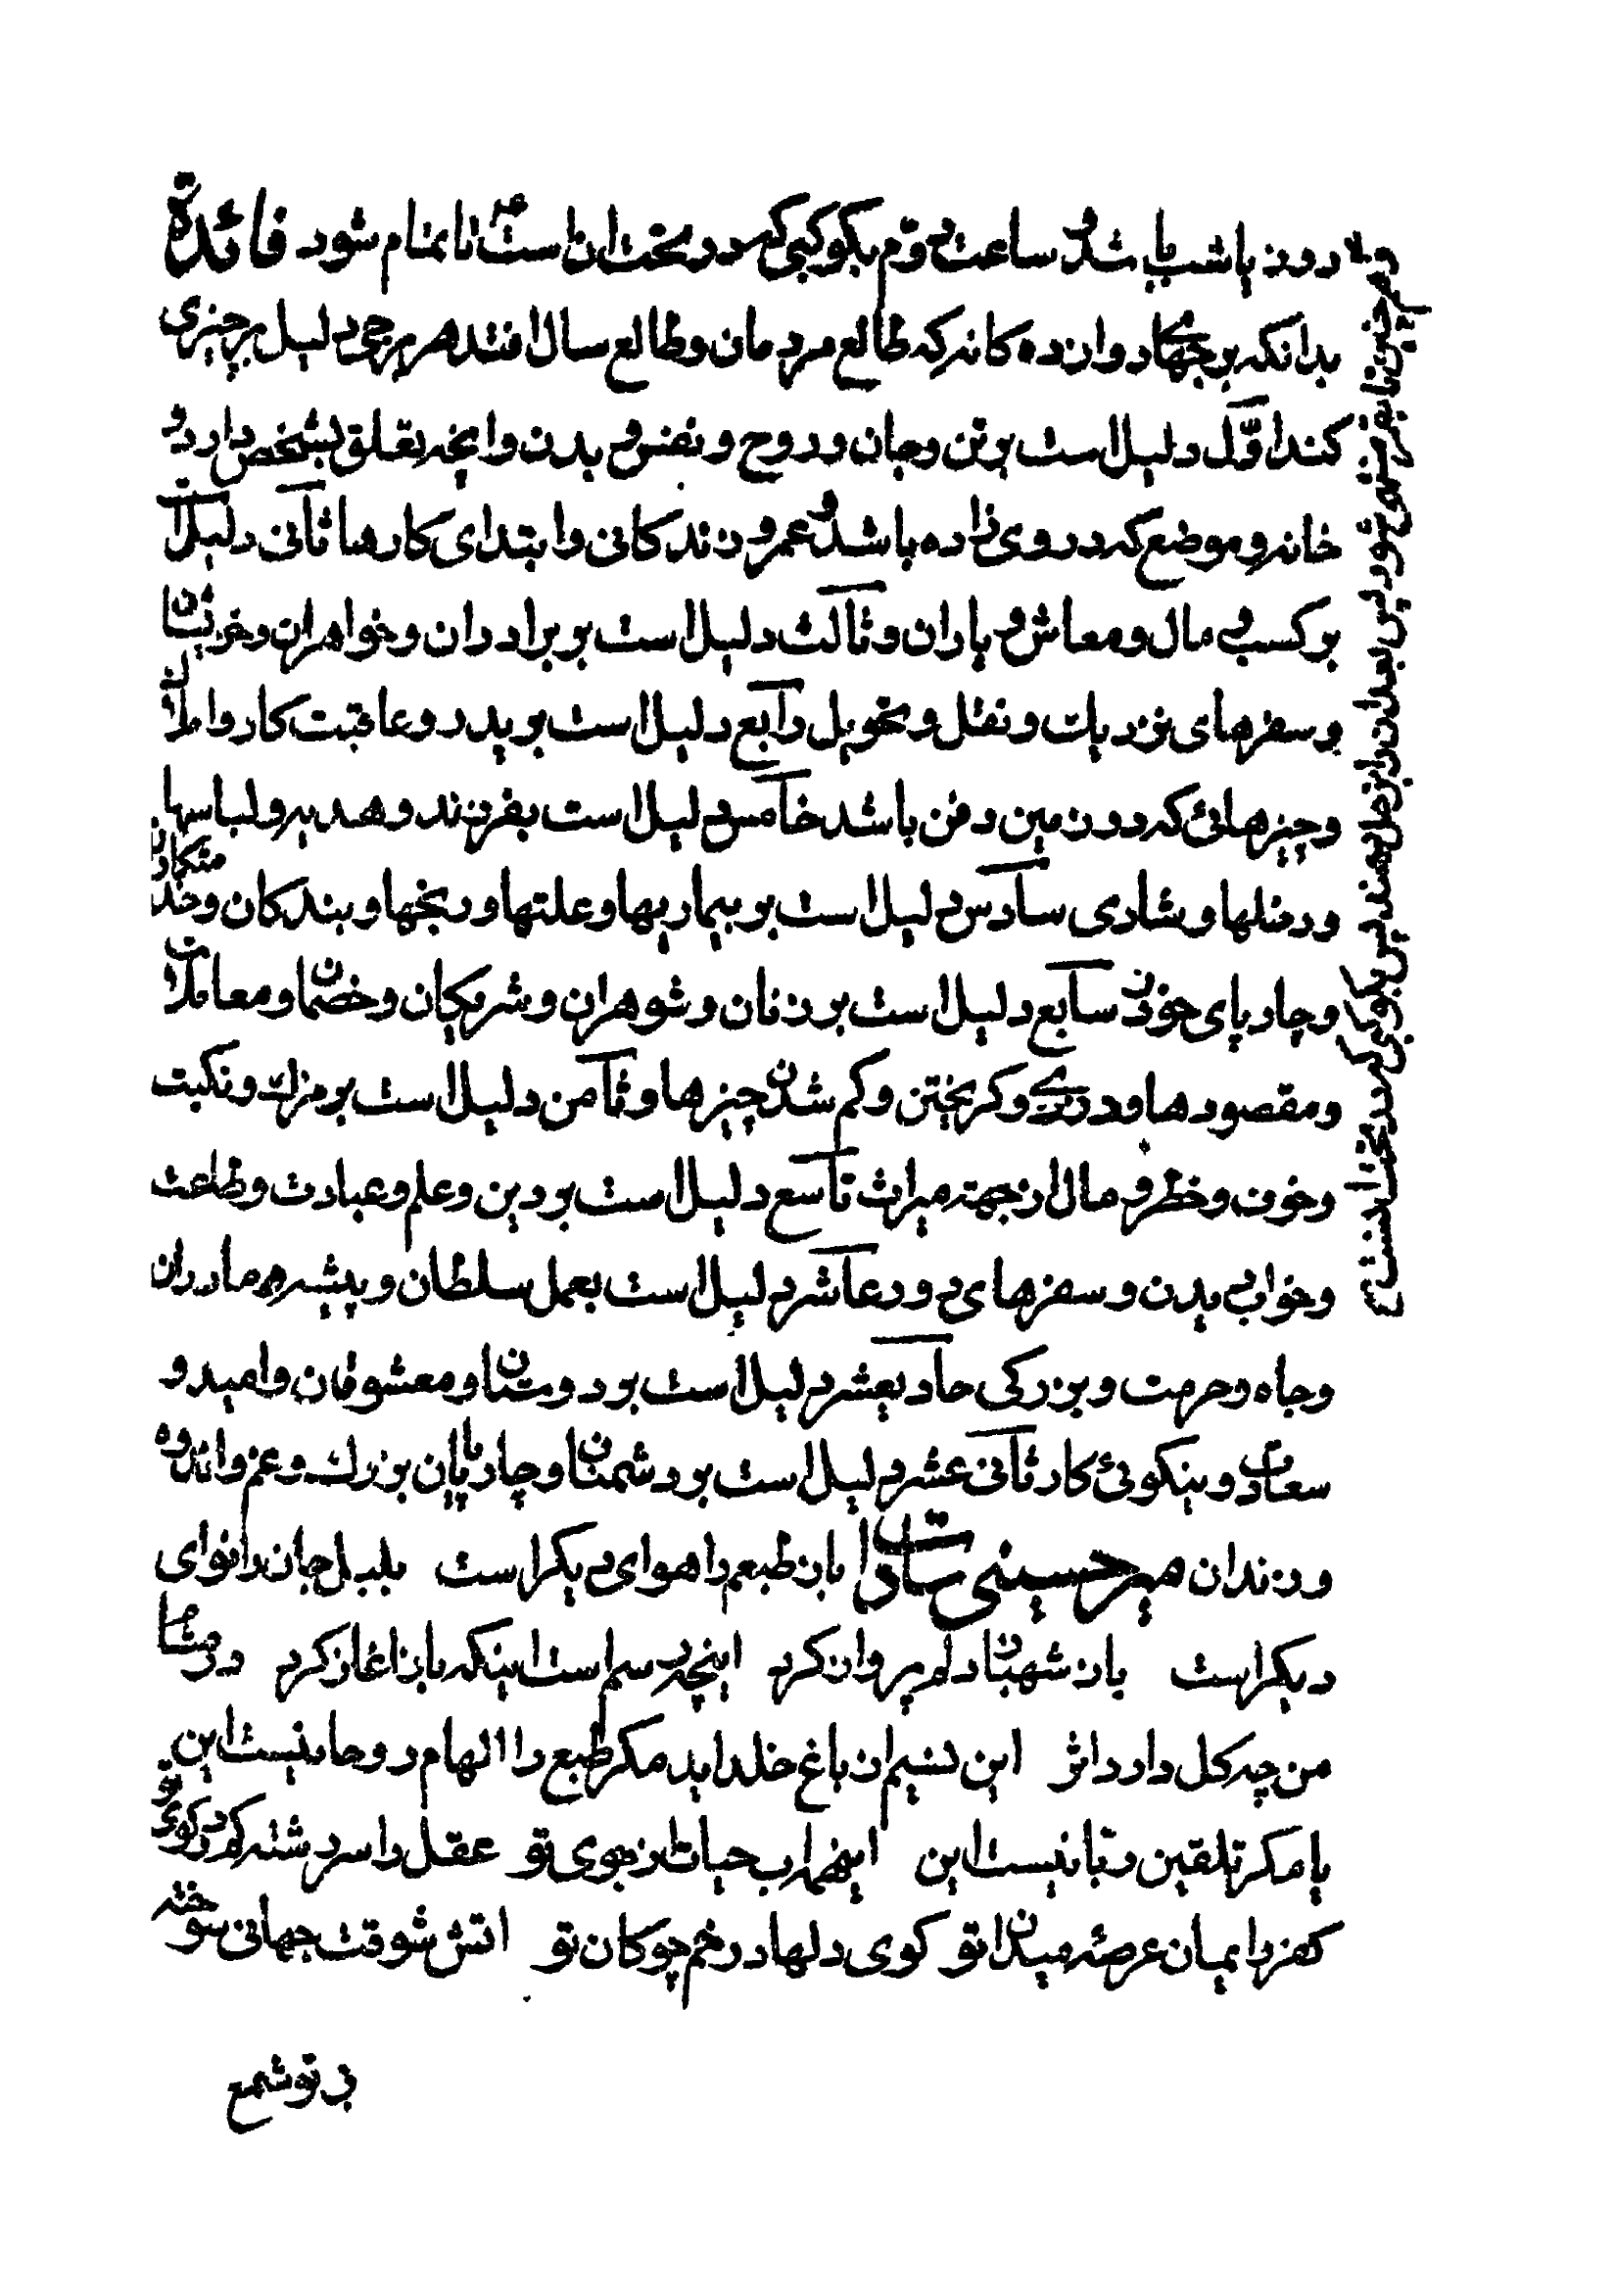 روز یا شب باشد و ساعت دوم بکوکبی که در تحت انست تا تمام شود فائدة
بدانکه برجهای دوازده کانه که طالع مردمان و طالع سال افتد هر برجی دلیل بر چیزی
کند اوّل دلیل است بر تن و جان و روح و نفس و بدن و انچه تعلق بشخص دارد و
خانه و موضع که در وی زاده باشد و عمر و زندکانی و ابتدای کارها ثانی دلیل است
بر کسب و مال و معاش و یاران و ثالث دلیل است بر برادران و خواهران و خویشان
و سفرهای نزدیک و نقل و تحویل رابع دلیل است بر پدر و عاقبت کار و املاک
و چیزهائی که در زمین دفن باشد خامس دلیل است بفرزند و هدیه و لباسها
و رسلها و شادی سادس دلیل است بر بیماریها و علتها و رنجها و بندکان و خدمتکاران
و چارپای خورد سابع دلیل است بر زنان و شوهران و شریکان و خصمان و معاملات
و مقصودها و دزدی و کریختن و کم شدن چیزها و ثامن دلیل است بر مرک و نکبت
و خوف و خطر و مال از جهة میراث تاسع دلیل است بر دین و علم و عبادت و طاعت
و خواب دیدن و سفرهای دور عاشر دلیل است بعمل سلطان و پیشه و مادران
و جاه و حرمت و بزرکی حادیعشر دلیل است بر دوستان و معشوقان و امید و
سعادت و نیکوئی کار ثانی عشر دلیل است بر دشمنان و چارپایان بزرک و غم و اندوه
و زندان میر حسینی سادات را باز طبعم را هوای دیکر است بلبل جان را نوای
دیکر است باز شهباز دلم پرواز کرد اینچه رسم است اینکه باز اغاز کرد در مشام
من چه کل دارد اثر این نسیم از باغ خلد اید مکر طبع را الهام روحانیست این
یا مکر تلقین ربانیست این اینهمه اب حیات از جوی تو عقل را سر رشته کم در کوی تو
کفر و ایمان عرصه میدان تو کوی دلها در خم چوکان تو اتش شوقت جهانی سوخته
پرتو شمع